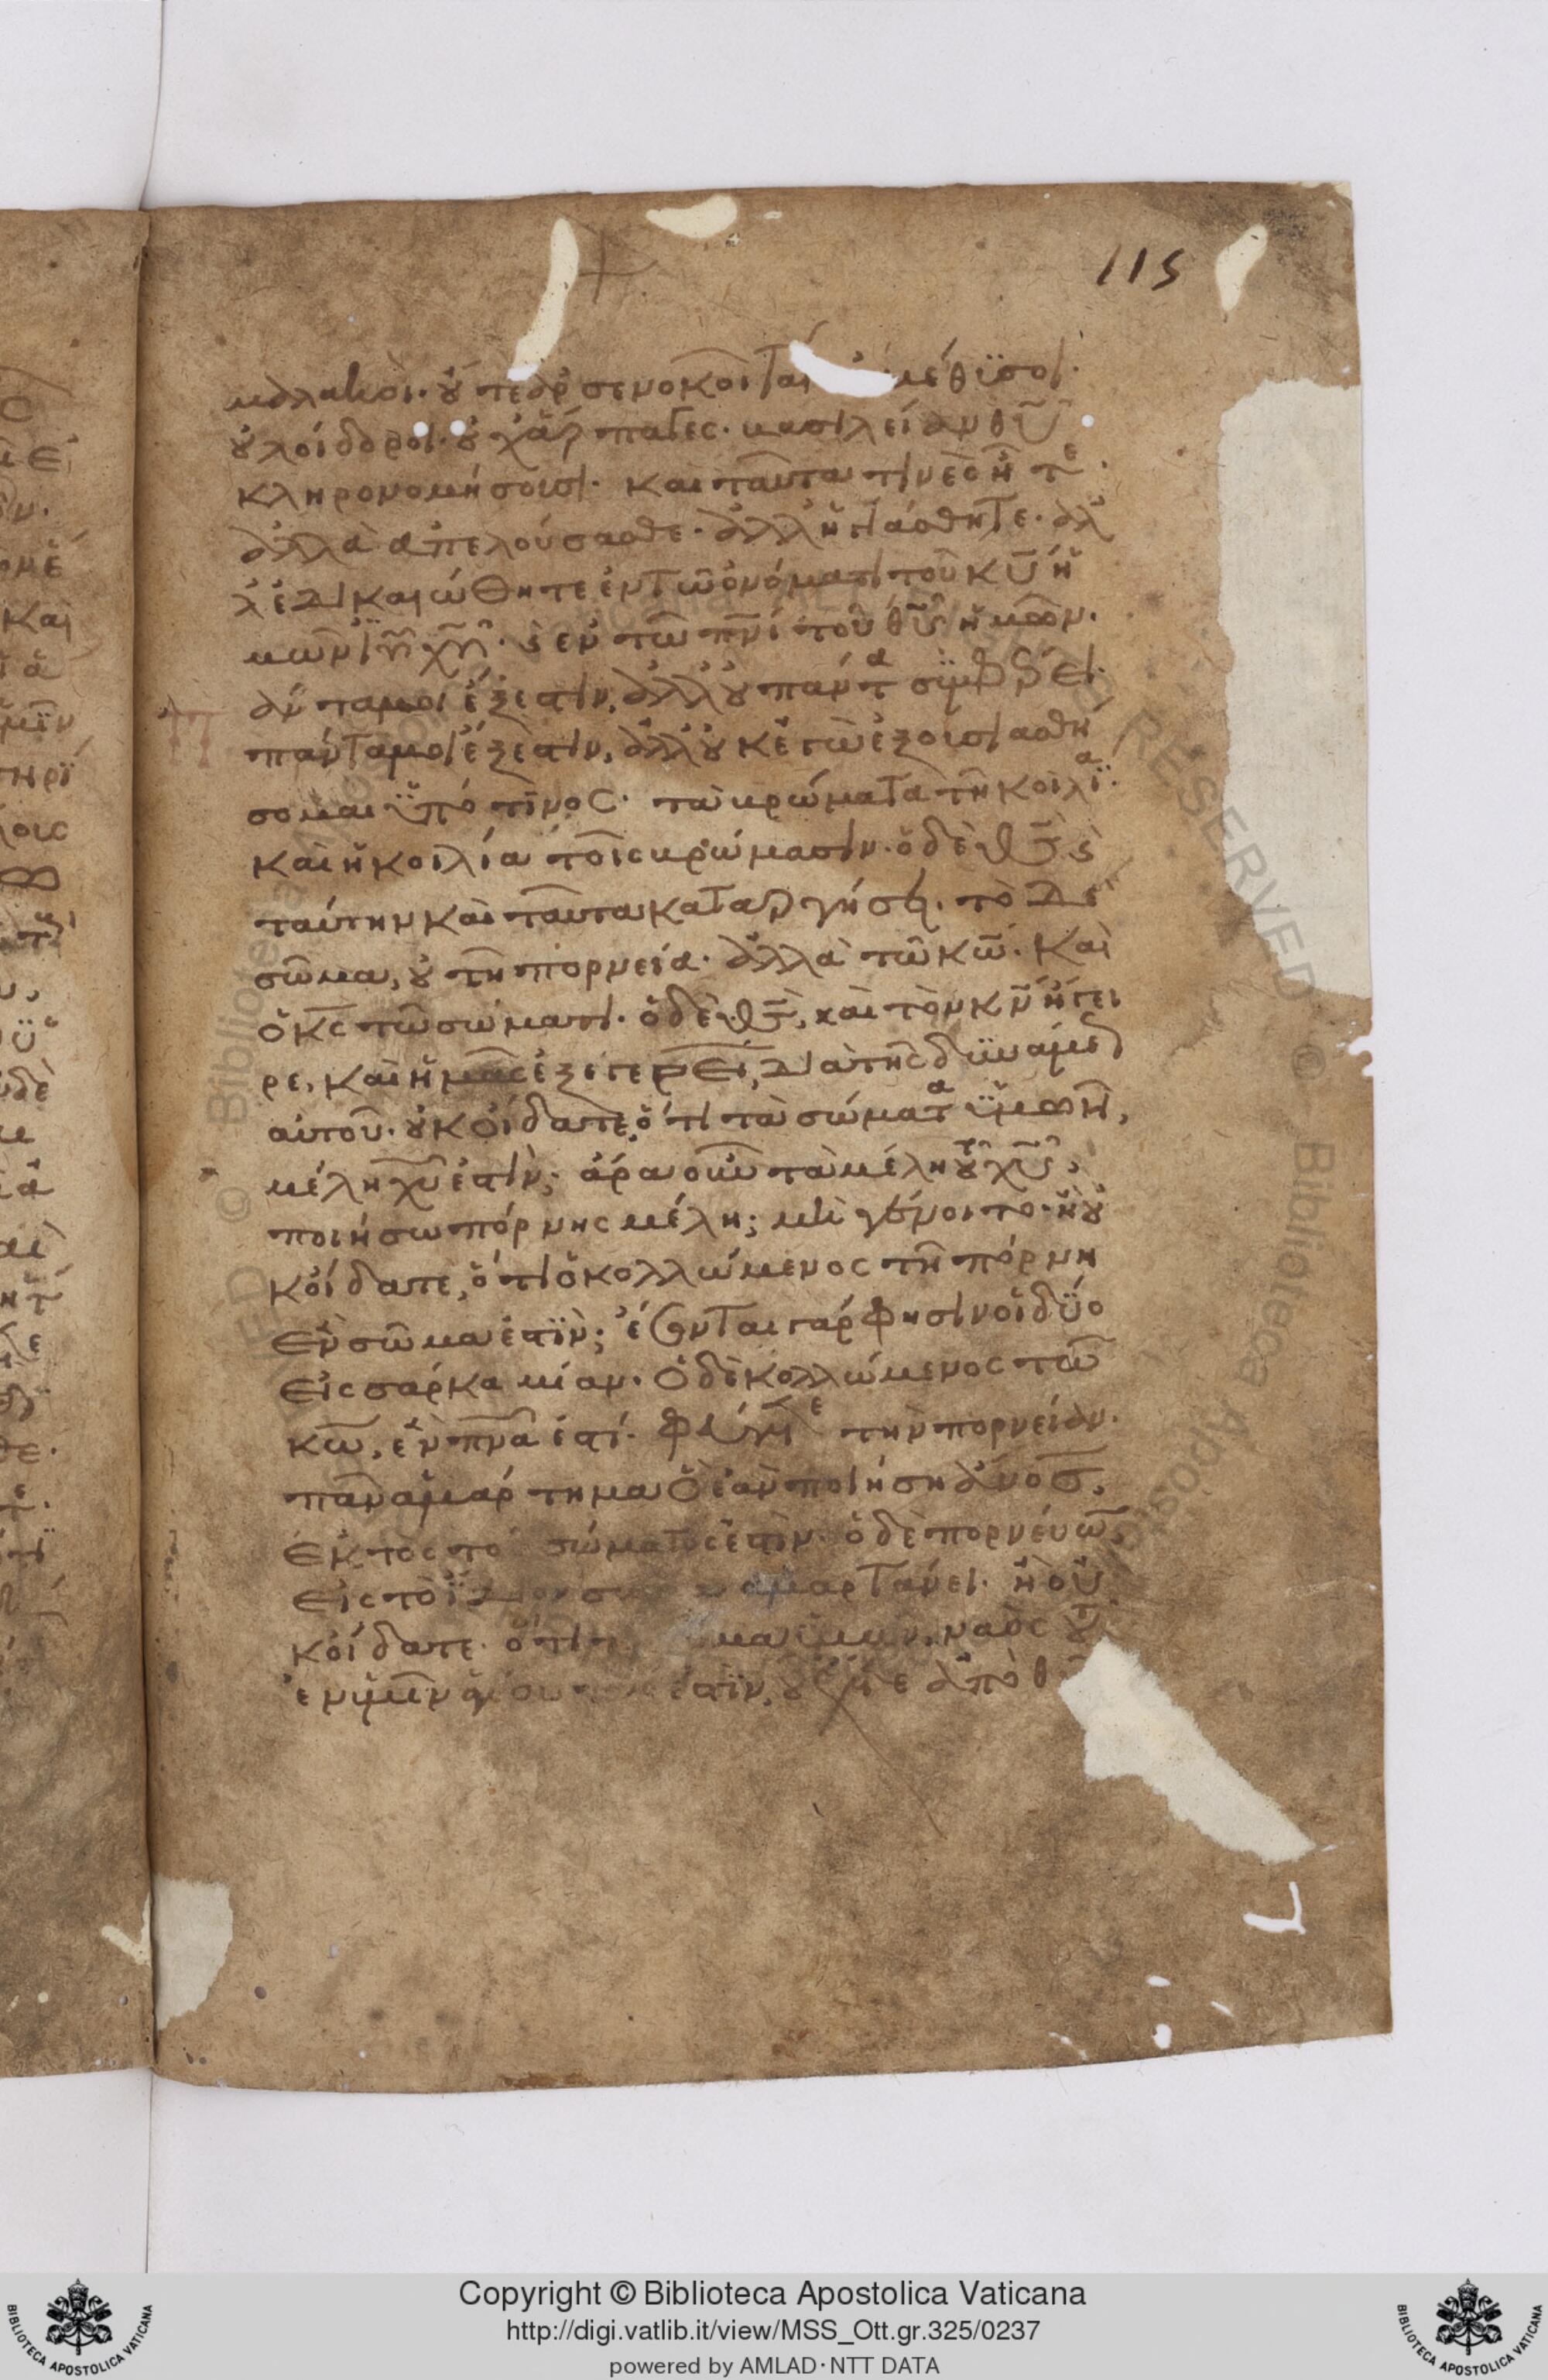 115
μαλακοὶ· ȣ̓τε ἀρσενοκοῖται μέθϋσοι·
ȣ̓ λοίδοροι· ȣ̓χ ἅρπαγες· βασιλείαν θῡ
κληρονομήσουσι· καὶ ταῦτα τινὲς ἦτε·
ἀλλὰ ἀπελούσασθε· ἀλλ ἡγιάσθητε· ἀλ
λ ἐδικαιώθητε ἐν τῶ ὀνόματι τοῦ κῡ ἡ
μῶν ϊῡ χῡ· ϗ ἐν τῶ πνῑ τοῦ θῡ ἡμῶν·
πάντα μοι ἔξεστιν, ἀλλ ȣ̓ πάντα συμφέρει·
πάντα μοι ἔξεστιν, ἀλλ ȣ̓κ ἐγὼ ἐξουσιασθή
σομαι ϋπό τινος· τὰ βρώματα τῆ κοιλία·
καὶ ἡ κοιλία τοῖς βρώμασιν· ὁ δὲ θς̄ ϗ
ταύτην καὶ ταῦτα καταργήσει· τὸ δὲ
σῶμα, ȣ̓ τῆ πορνεία· ἀλλὰ τῶ κω̄· καὶ
ὁ κς̄ τῶ σώματι· ὁ δὲ θς̄, καὶ τὸν κν̄ ἤγει
ρε, καὶ ἡμᾶς ἐξεγερεῖ, διὰ τῆς δυνάμεως
αὐτοῦ· ȣ̓κ οἴδατε, ὅτι τὰ σώματα ϋμῶν,
μέλη χῡ ἐστὶν; ἄρα οὖν τὰ μέλη τȣ͂ χῡ,
ποιήσω πόρνης μέλη; μὴ γένοιτο· ἢ ȣ̓
κ οἴδατε, ὅτι ὁ κολλώμενος τῆ πόρνη
ἓν σῶμα ἐστϊν; ἔσονται γάρ φησιν οἱ δύο
εἰς σάρκα μίαν· ὁ δὲ κολλώμενος τῶ
κω̄, ἓν πνᾱ ἐστί· φεύγετε τὴν πορνείαν·
πᾶν ἁμάρτημα ὃ ἐὰν ποιήση ἄνος̄,
ἐκτὸς το σώματος ἐστϊν· ὁ δὲ πορνεύων,
εἰς τὸ ϊδιον σῶμα ἁμαρτάνει· ἢ οὐ
κ οἴδατε· ὅτι τ μα ϋμῶν, ναὸς τȣ͂
ἐν ϋμῖν ἁγίου ἐστϊν, ȣ͂ ἔχετε ἀπὸ θ
Copyright © Biblioteca Apostolica Vaticana
http://digi.vatlib.it/view/MSS_Ott.gr.325/0237
powered by AMLAD·NTT DATA